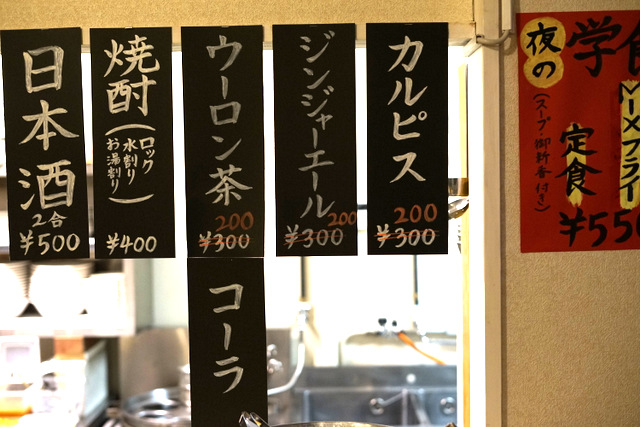 日本酒
2合
¥500
焼酎
(ロック
水割り
お湯割り)
¥400
ウーロン茶
200
¥300
ジンジャーエール
200
¥300
カルピス
200
¥300
コーラ
夜の
(スープ・御新香付き)
定食
¥550
学
ミックスフライ